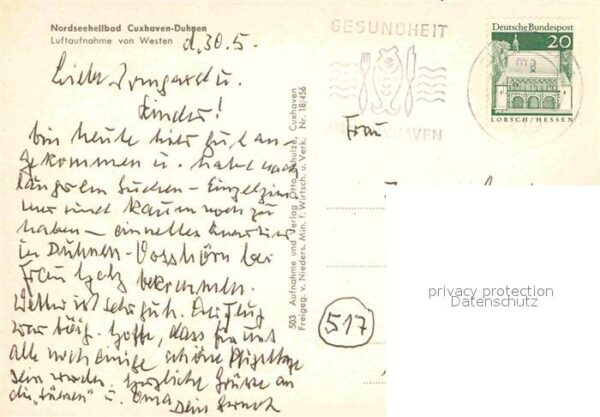 Nordseeheilbad Cuxhaven-Duhnen
Luftaufnahme von Westen
d. 30. 5.
Kinder!
bin heute hier gut an-
gekommen u. habe nach
längerem Suchen - Einzelzim-
mer sind kaum noch zu
haben - ein nettes Quartier
in Duhnen - bei
Frau bekommen.
Wetter ist sehr gut.
war Hoffe, dass für uns
alle noch einige schöne Pfingsttage
sein werden. herzliche Grüsse an
die u. Oma Dein
503 Aufnahme und Verlag Otto Schulze, Cuxhaven
Freigeg. v. Nieders. Min. f. Wirtsch. u. Verk. Nr. 18/456
GESUNDHEIT
HAVEN
Deutsche Bundespost
20
LORSCH/HESSEN
Frau
517
privacy protection
Datenschutz